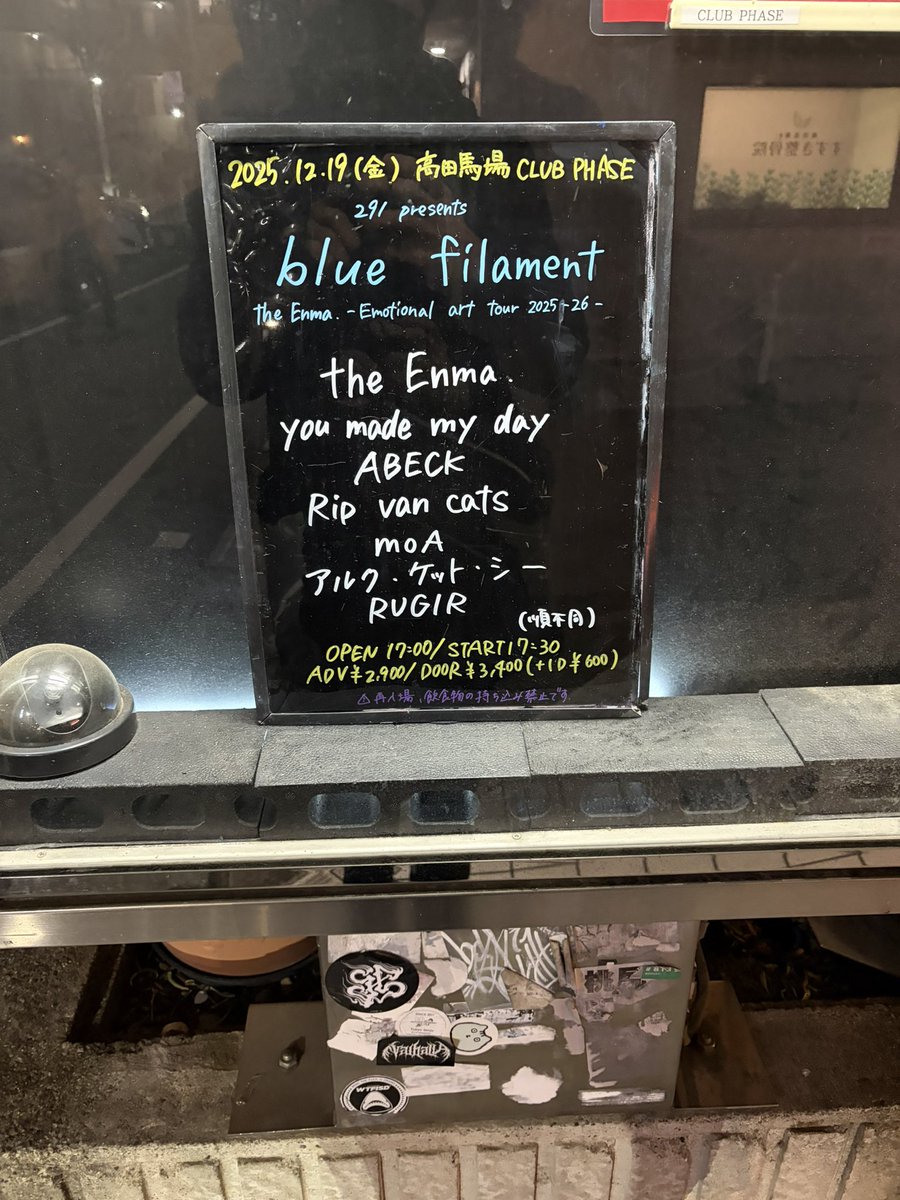 CLUB PHASE
すずき整骨院
2025.12.19(金) 高田馬場 CLUB PHASE
291 presents
blue filament
the Enma. -Emotional art tour 2025-26-
the Enma.
you made my day
ABECK
Rip van cats
moA
アルク・ケット・シー
RUGIR
(順不同)
OPEN 17:00/START17:30
ADV¥2,900/DOOR¥3,400(+1D¥600)
⚠再入場、飲食物の持ち込み禁止です
Valhalla
WTFISD